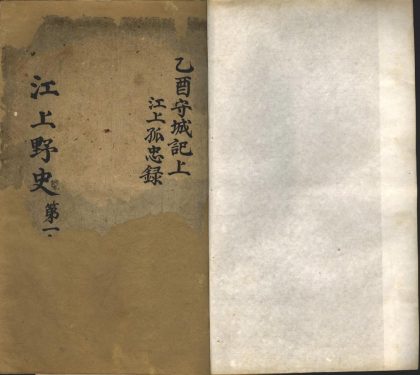 乙酉守城記上
江上孤忠録
江上野史 第一